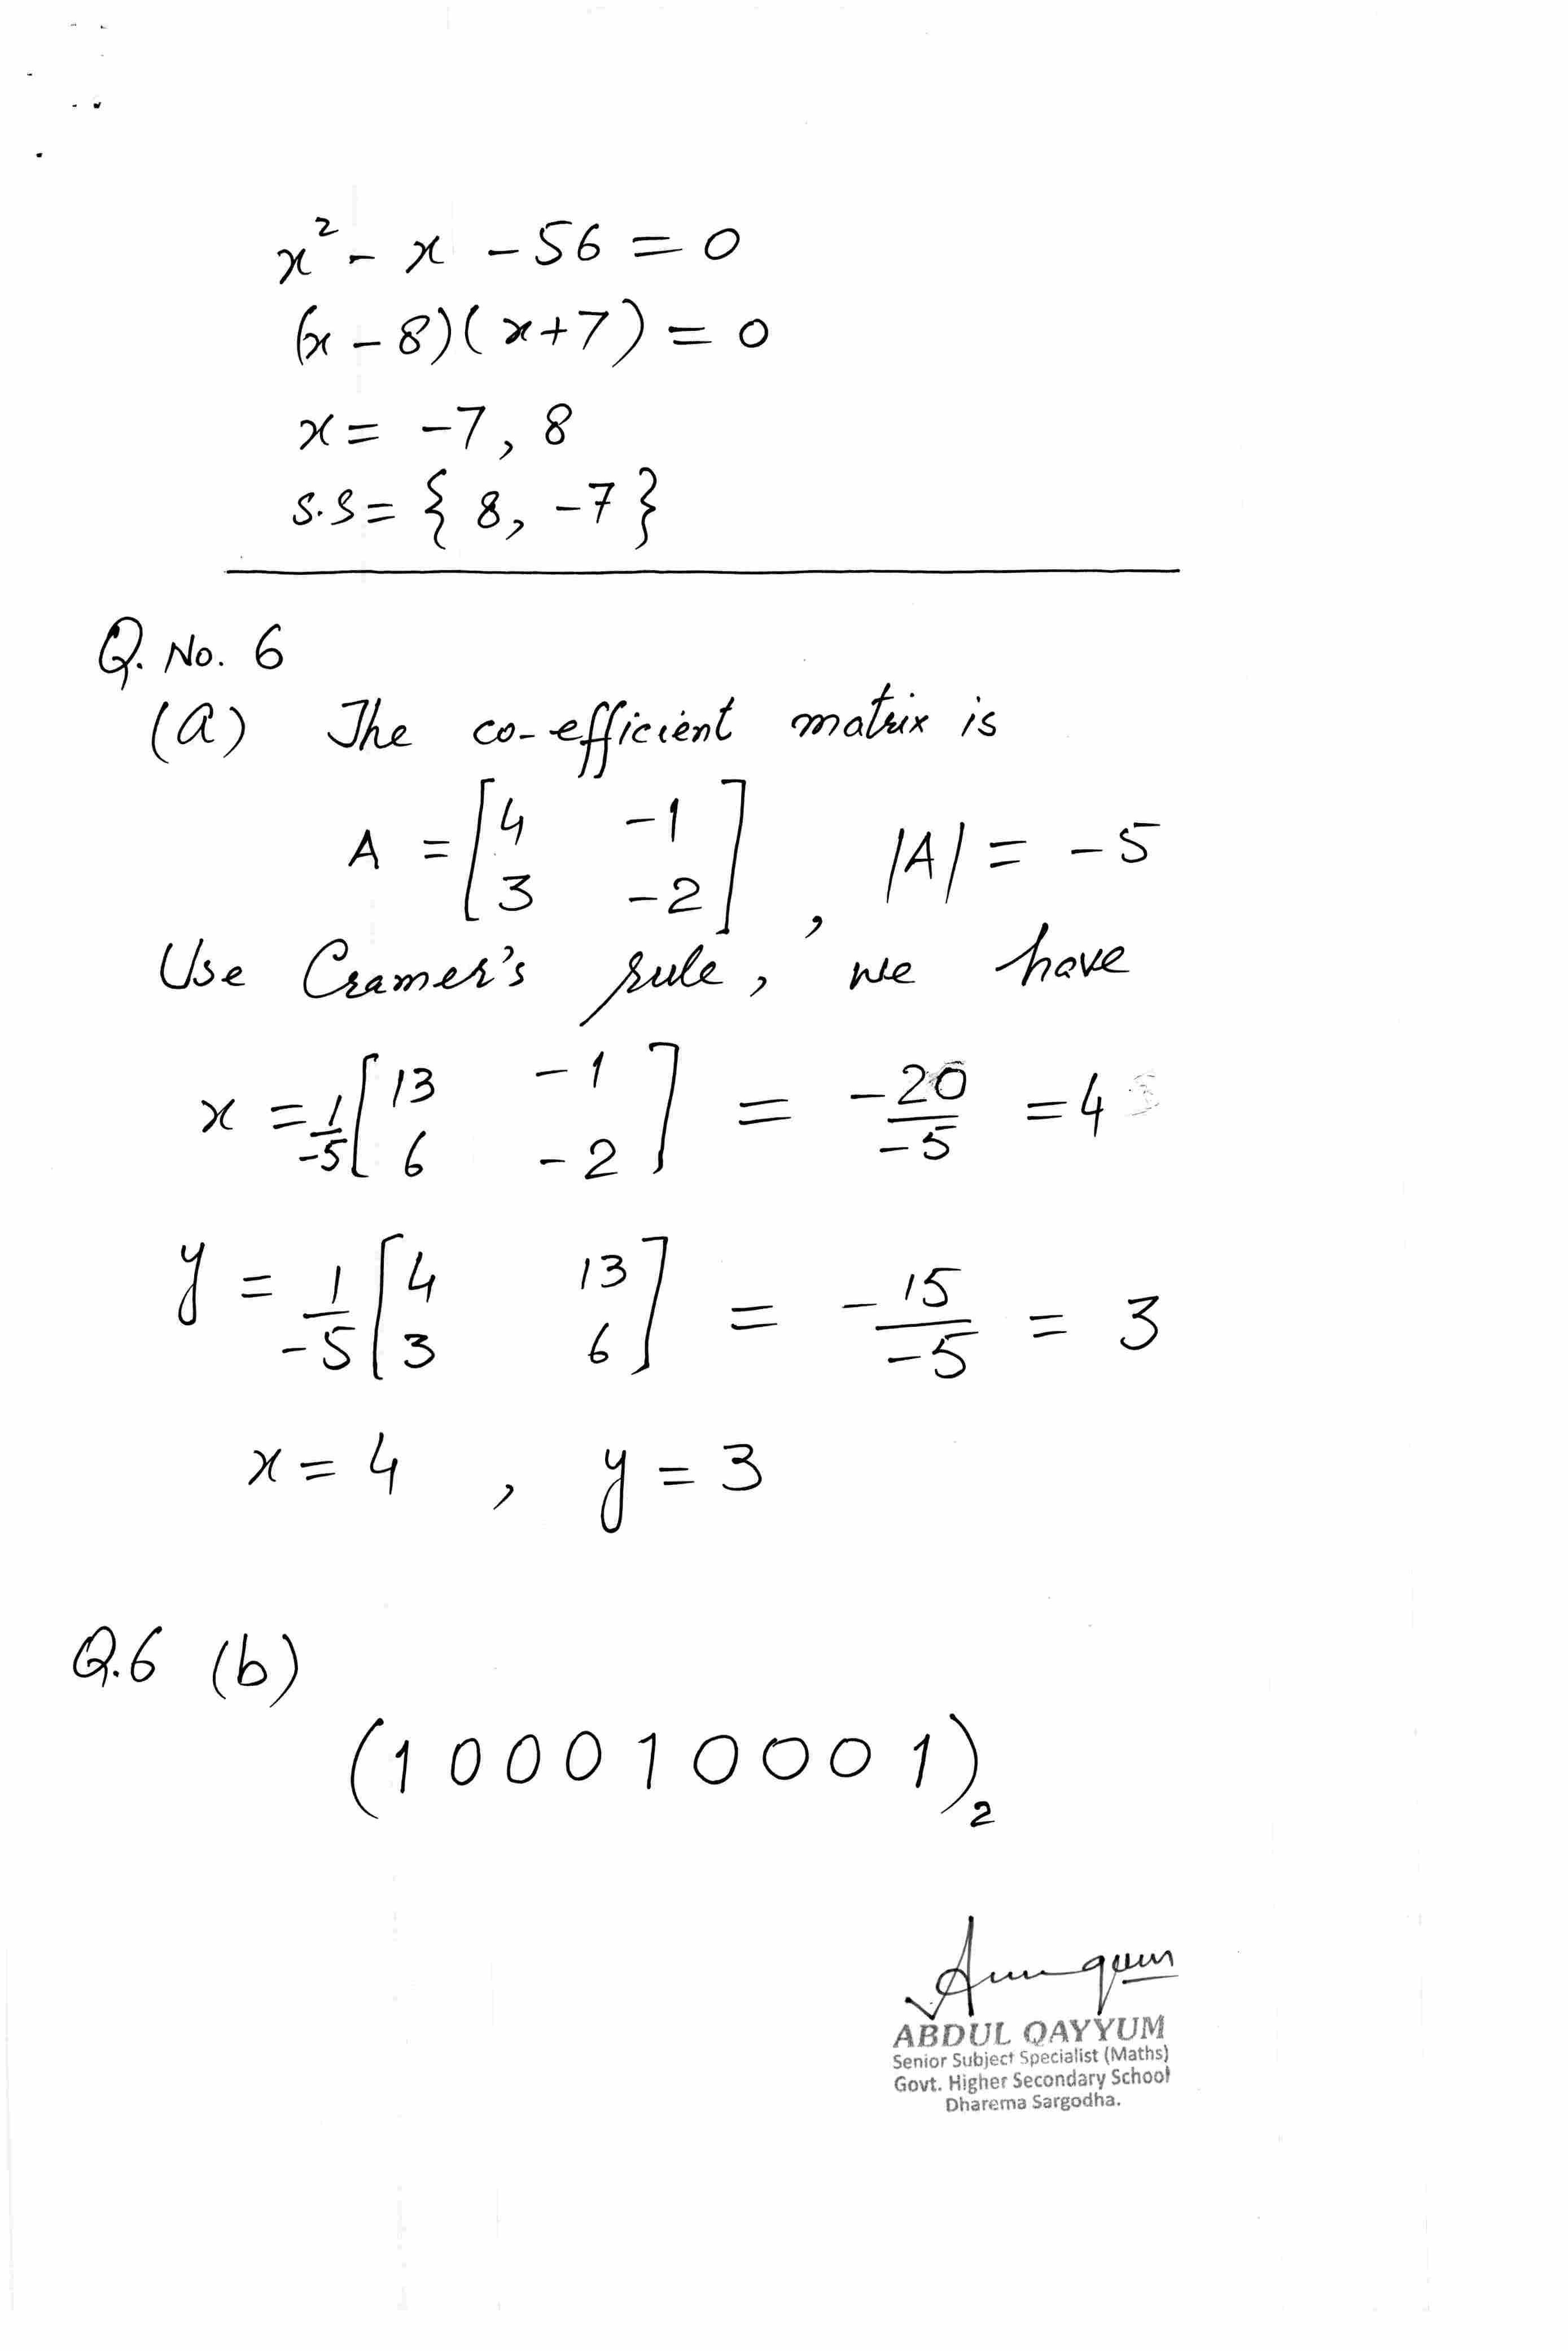 x² - x - 56 = 0
(x - 8)(x+7) = 0
x = -7, 8
S.S = { 8, -7}
Q. No. 6
(a) The co-efficient matrix is
A = [4 -1
3 -2], |A| = -5
Use Cramer's rule, we have
x = 1/-5 [13 -1
6 -2] = -20/-5 = 4
y = 1/-5 [4 13
3 6] = -15/-5 = 3
x = 4, y = 3
Q.6 (b)
(1000100001)₂
ABDUL QAYYUM
Senior Subject Specialist (Maths)
Govt. Higher Secondary School
Dharema Sargodha.